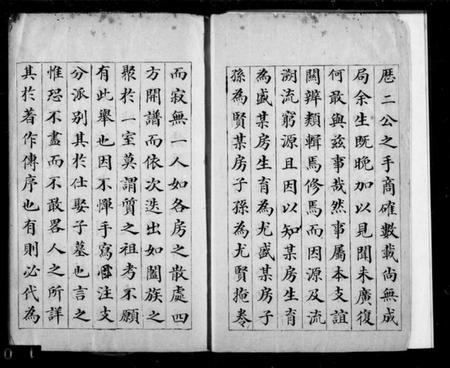 歷二公之手商確數載尚無成
局余生既晚加以見聞未廣復
何敢與兹事哉然事屬本支誼
關辨類輯焉修焉而因源及流
溯流窮源且因以知某房生育
為盛某房生育為尤盛某房子
孫為賢某房子孫為尤賢掩卷
而寂無一人如各房之散處四
方開譜而依次迭出如闔族之
聚於一室莫謂質之祖考不願
有此舉也因不憚手寫注支
分派別其於仕娶子墓也言之
惟恐不盡而不敢畧人之所詳
其於著作傳序也有則必代為